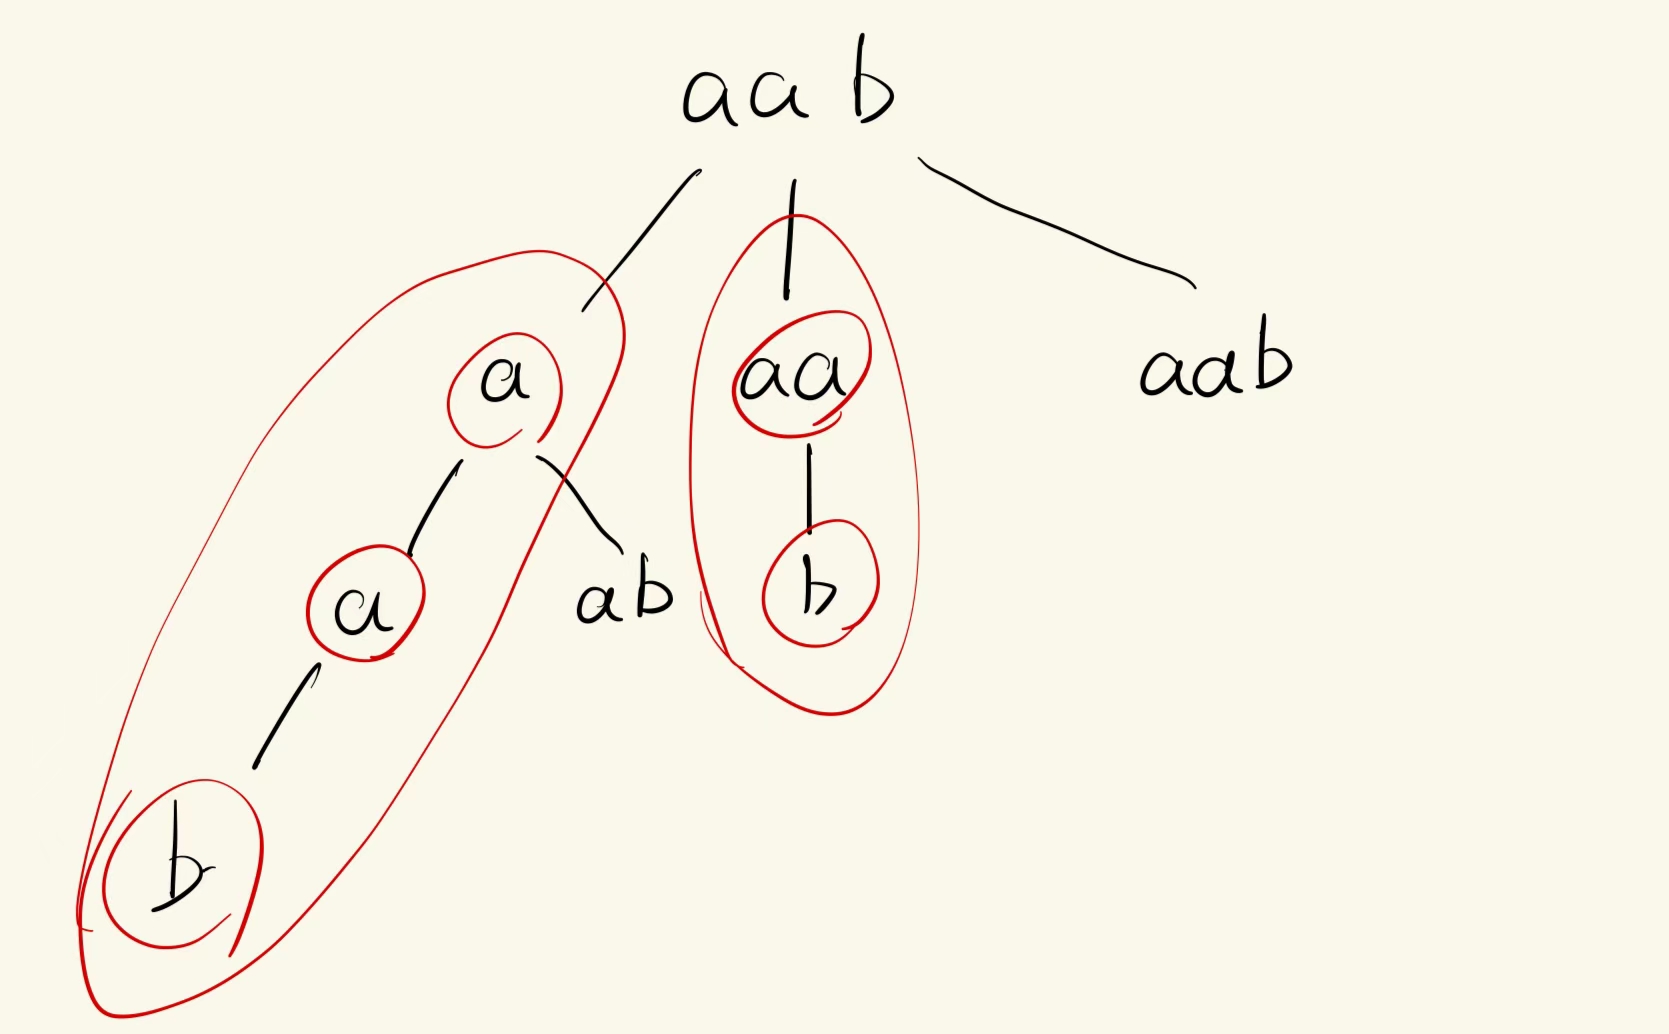 aab
a
aa
aab
a
ab
b
b